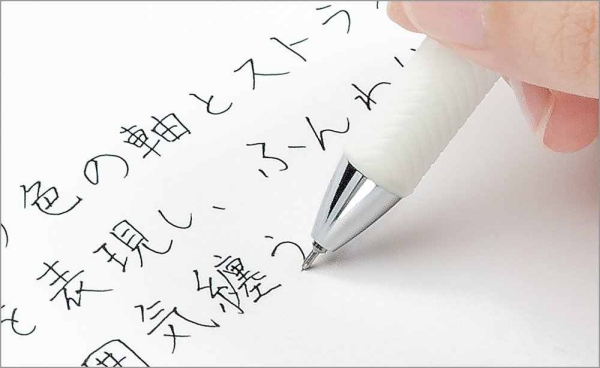 色の軸とストラ
を表現し、ふんわり
囲気纏う